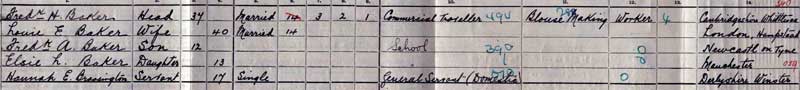 Fredk H. Baker Head 37 Married 14 3 2 1 Commercial Traveller 490 Blouse Making Worker 4 Cambridgeshire
Louie E Baker Wife 40 Married 14 London, Hampstead
Fredk A. Baker Son 12 School 390 0 Newcastle on Tyne
Elsie L. Baker Daughter 13 " 0 Manchester
Hannah E. Servant 17 Single General Servant (Domestic) 0 Derbyshire Winster